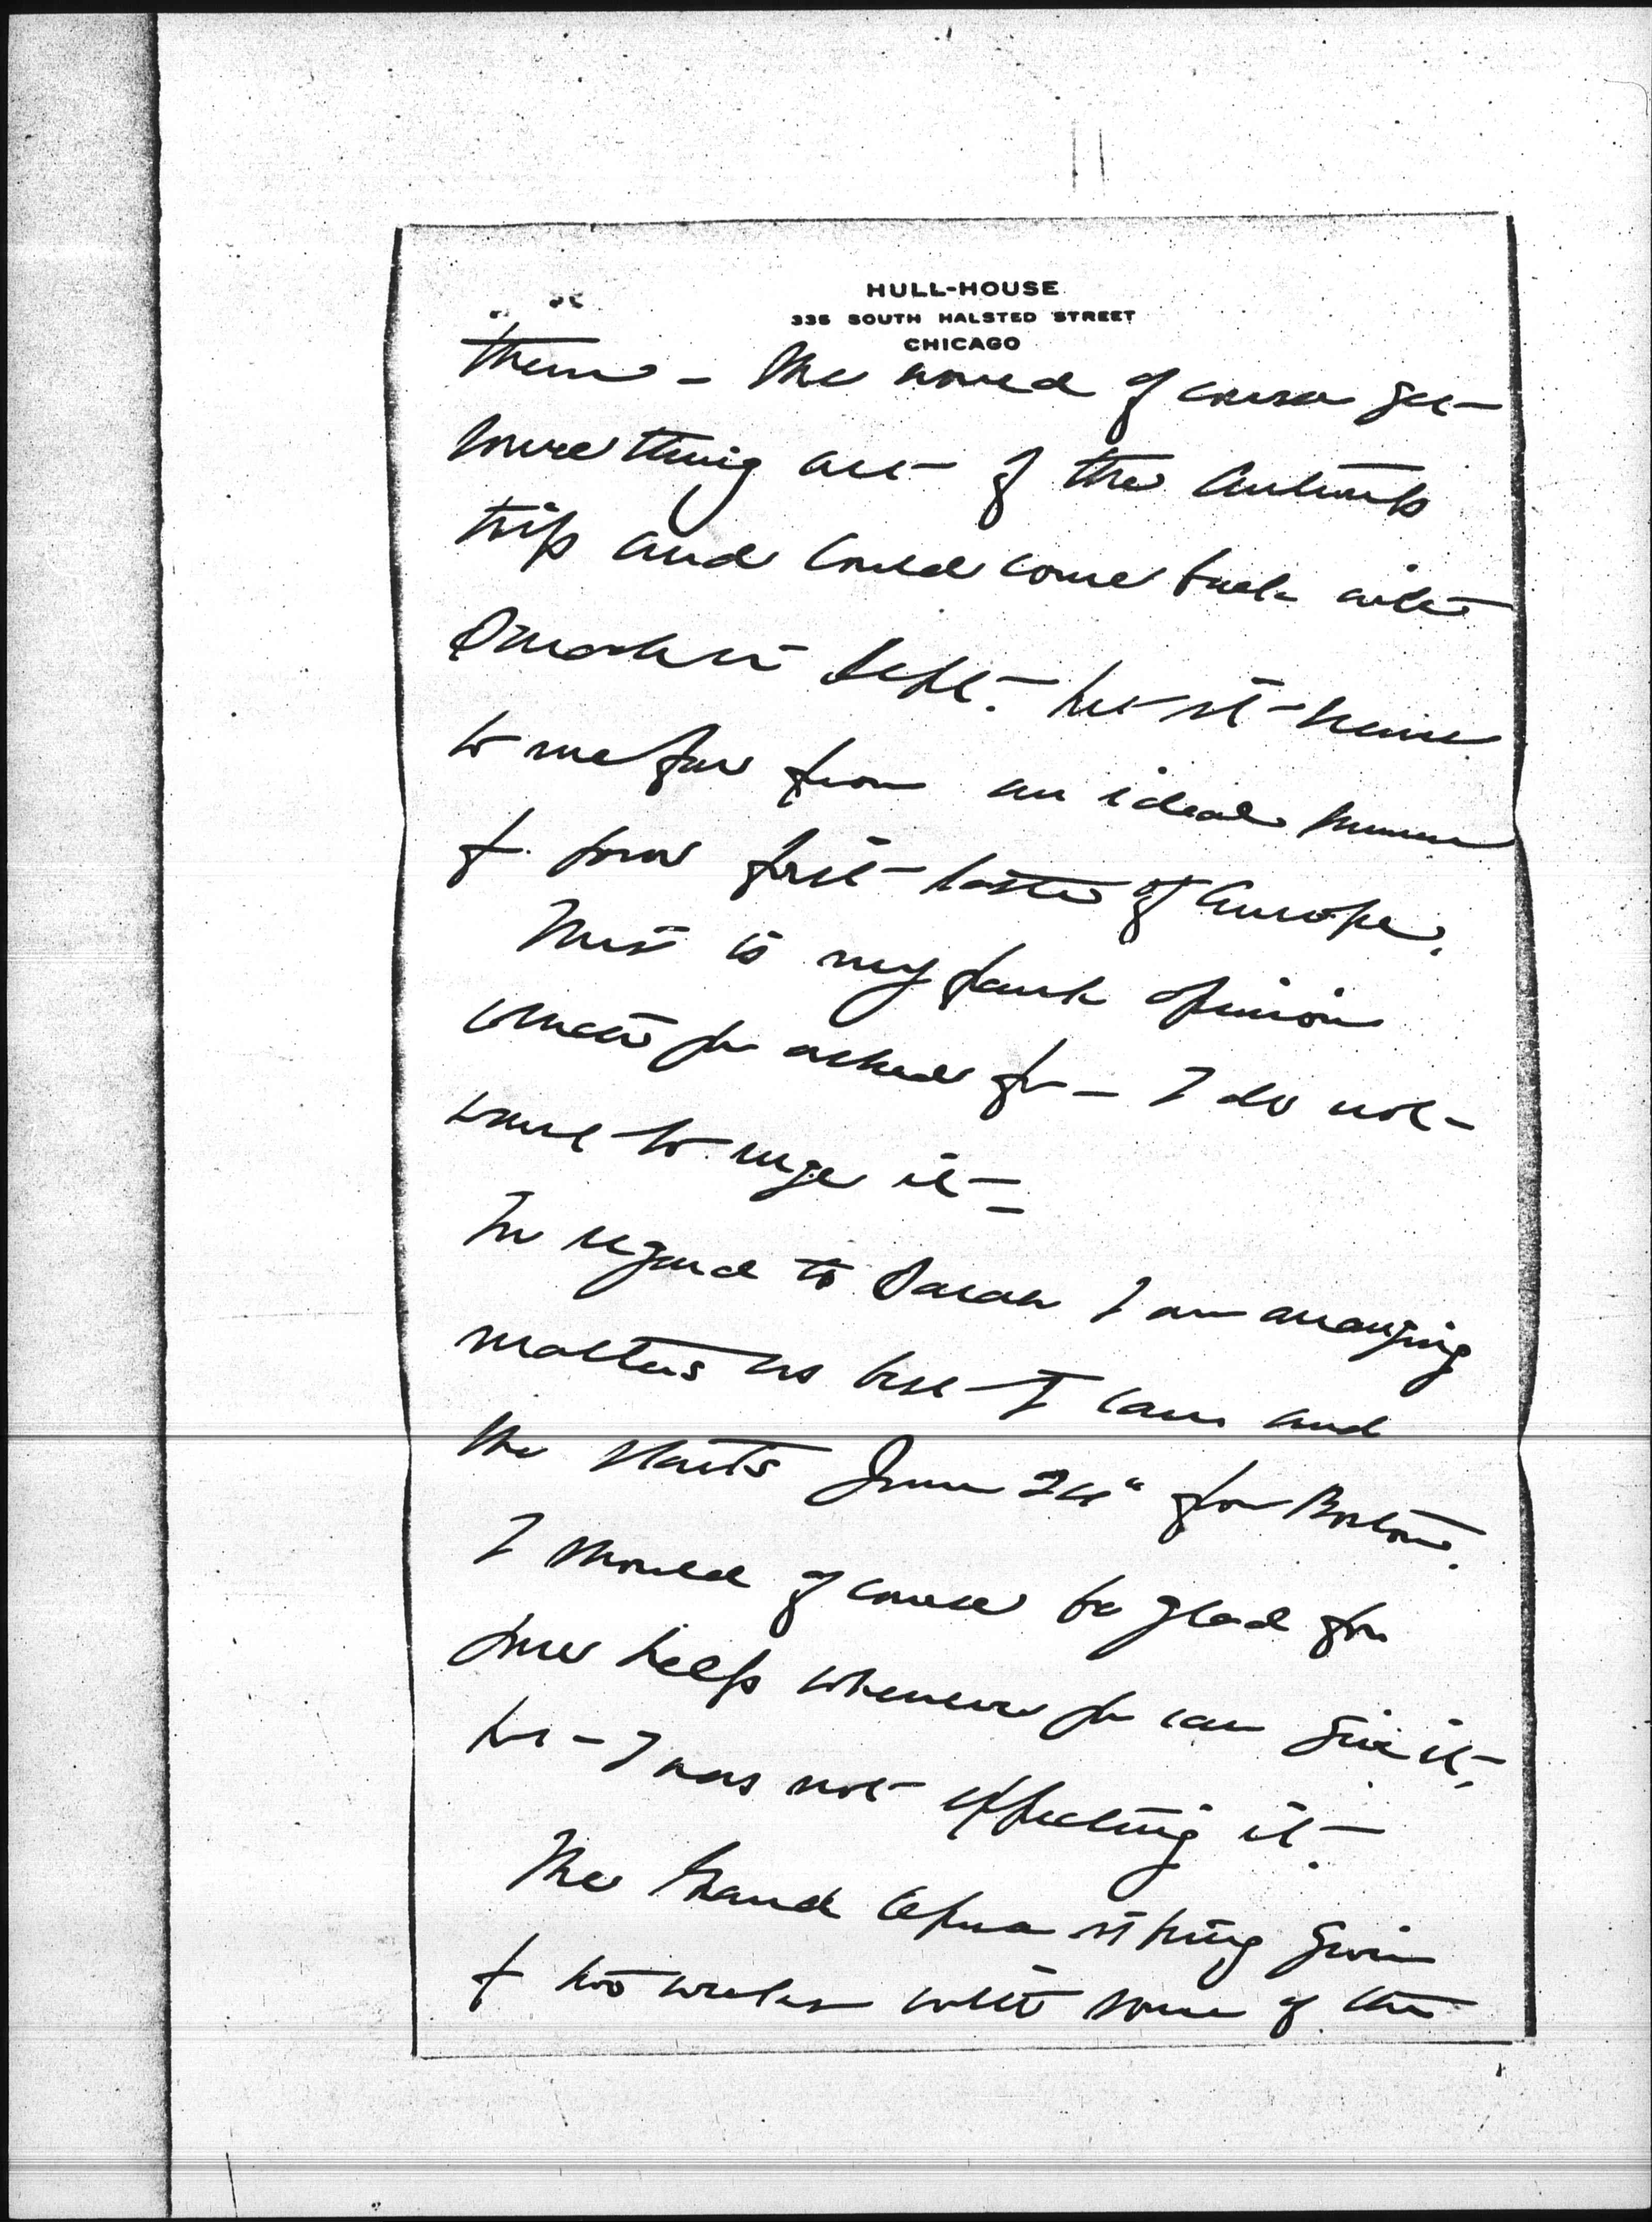 HULL-HOUSE
335 SOUTH HALSTED STREET
CHICAGO
them – She would of course get
something out of the
trip and could come back with
Sarah in Sept. but it seems
to me far from an ideal summer
for your first taste of Europe.
This is my frank opinion
which you asked for – I do not
want to urge it –
In regard to Sarah I am arranging
matters as best I can and
she starts June 24" for Boston.
I should of course be glad for
your help whenever you can give it,
but – I was not expecting it –
The Grand Opera is being given
for two weeks with some of the